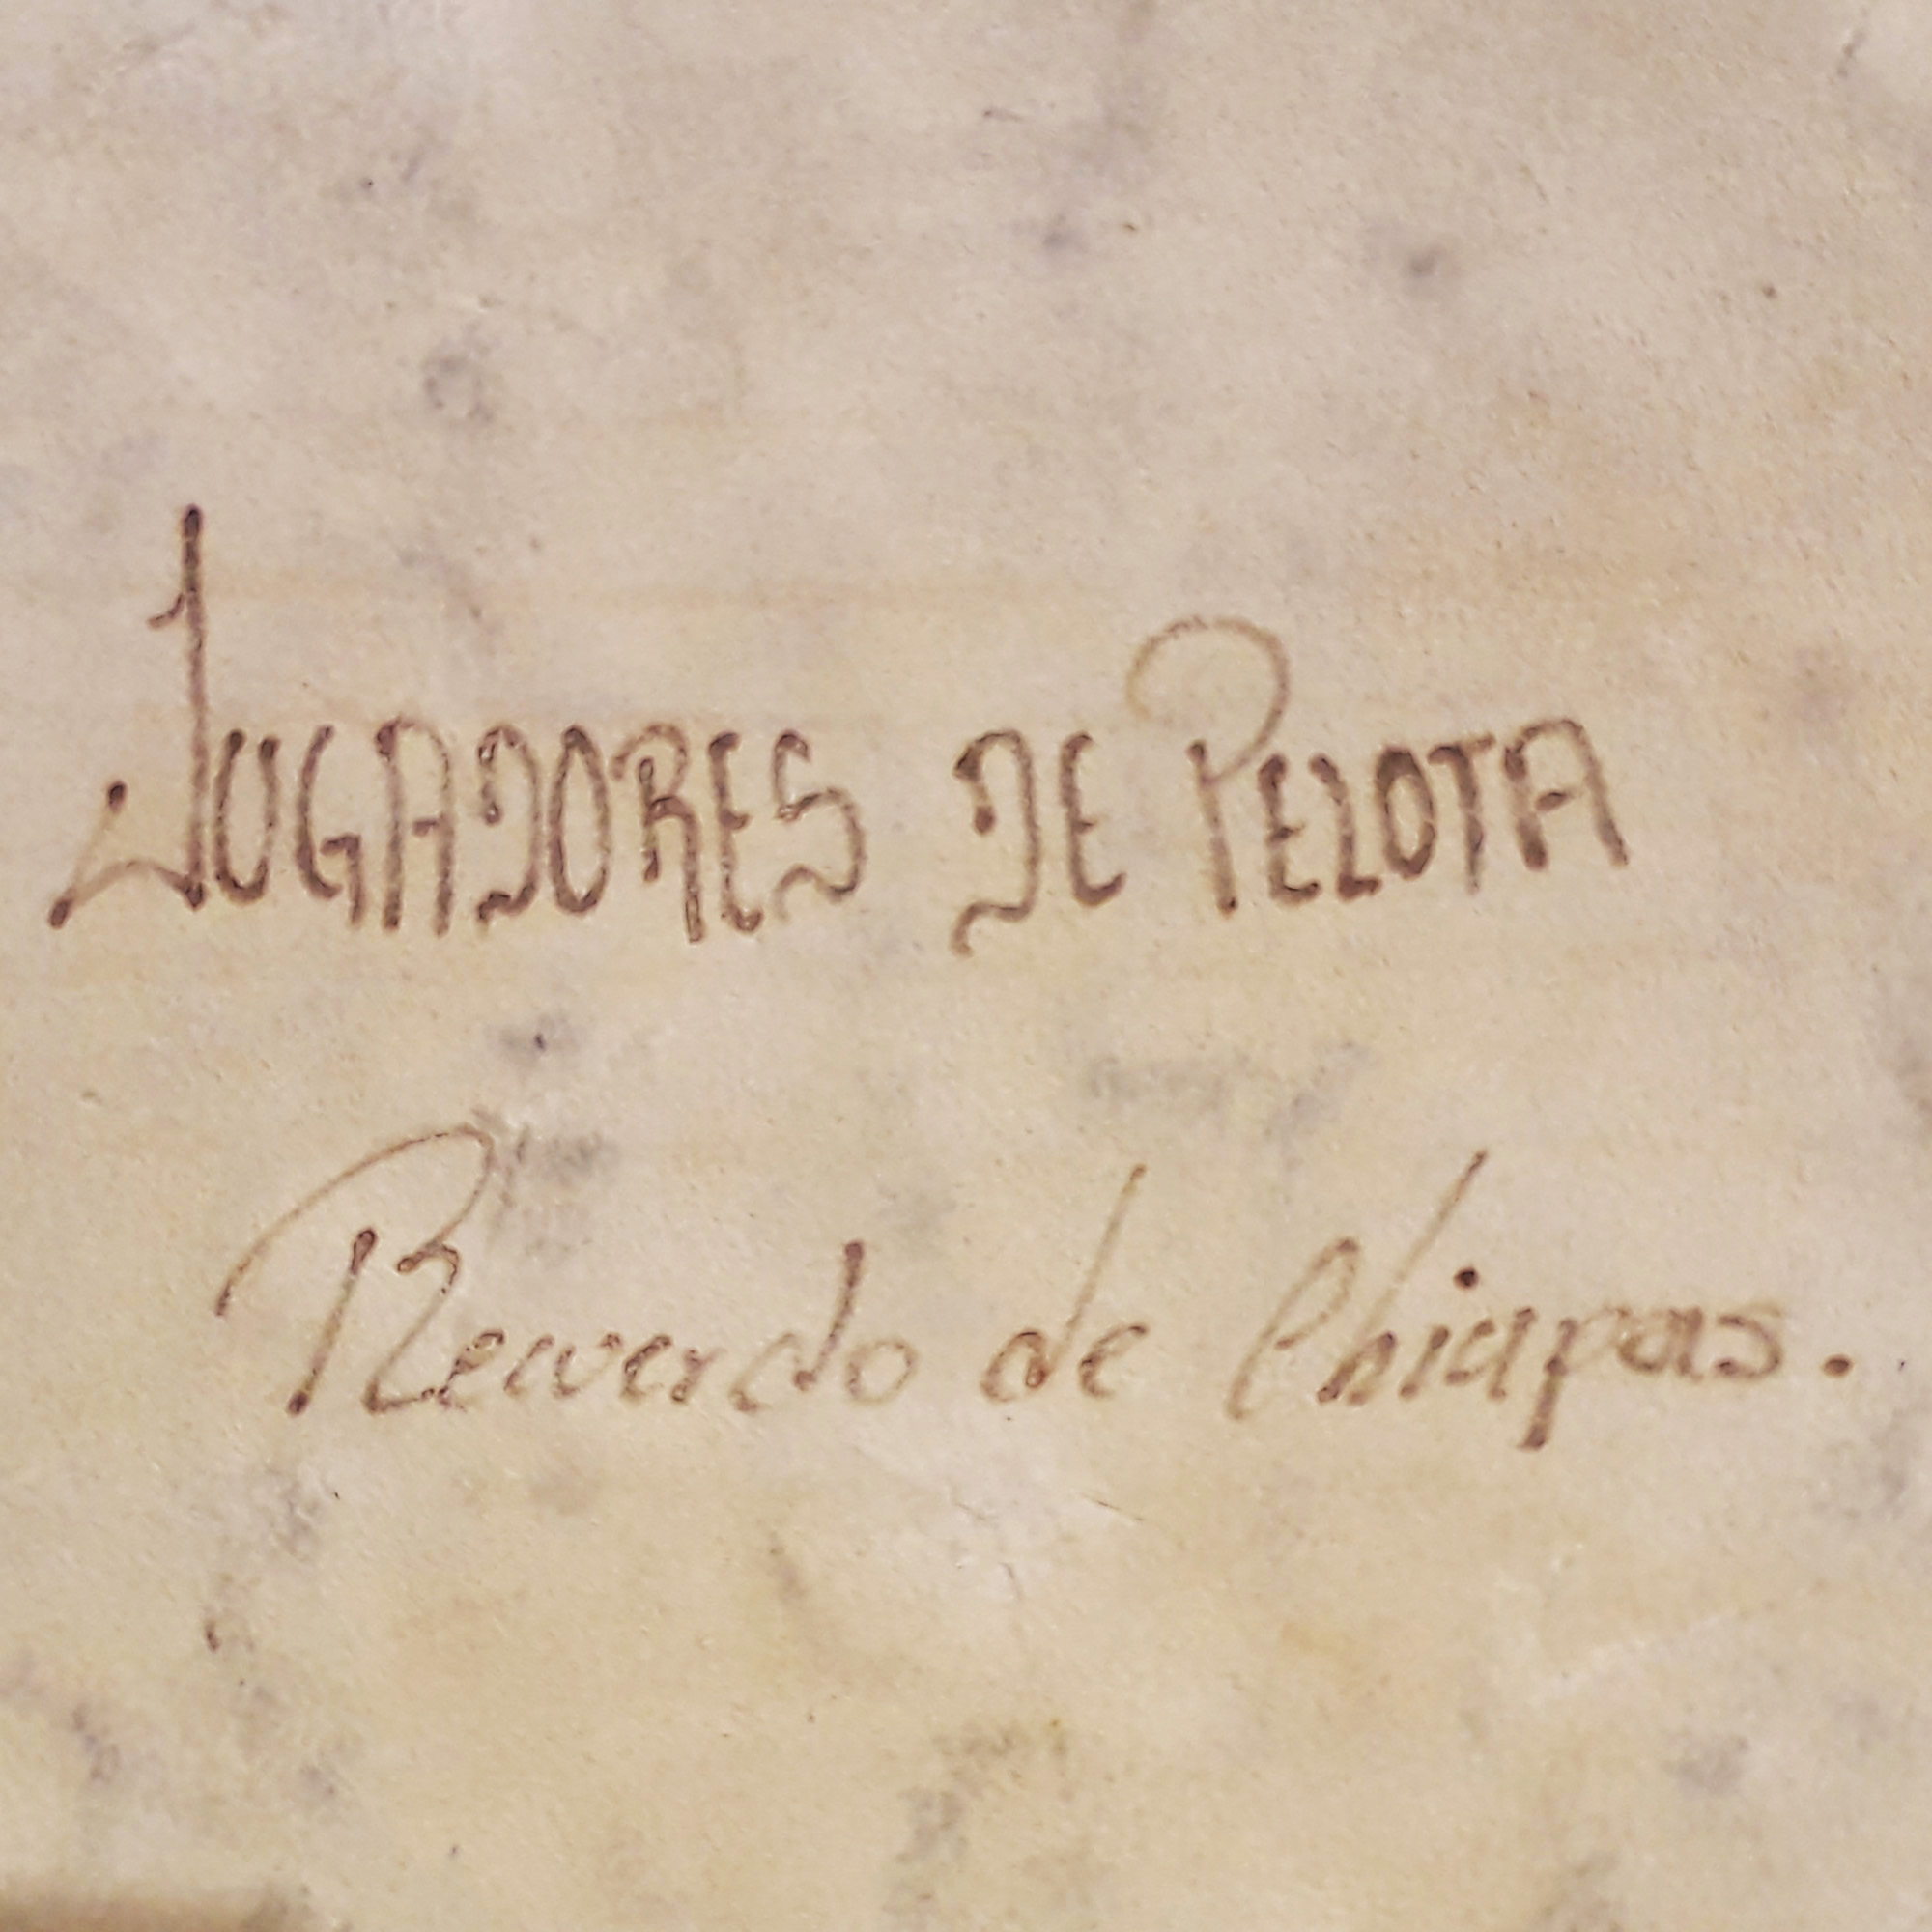 JUGADORES DE PELOTA
Recuerdo de Chiapas.